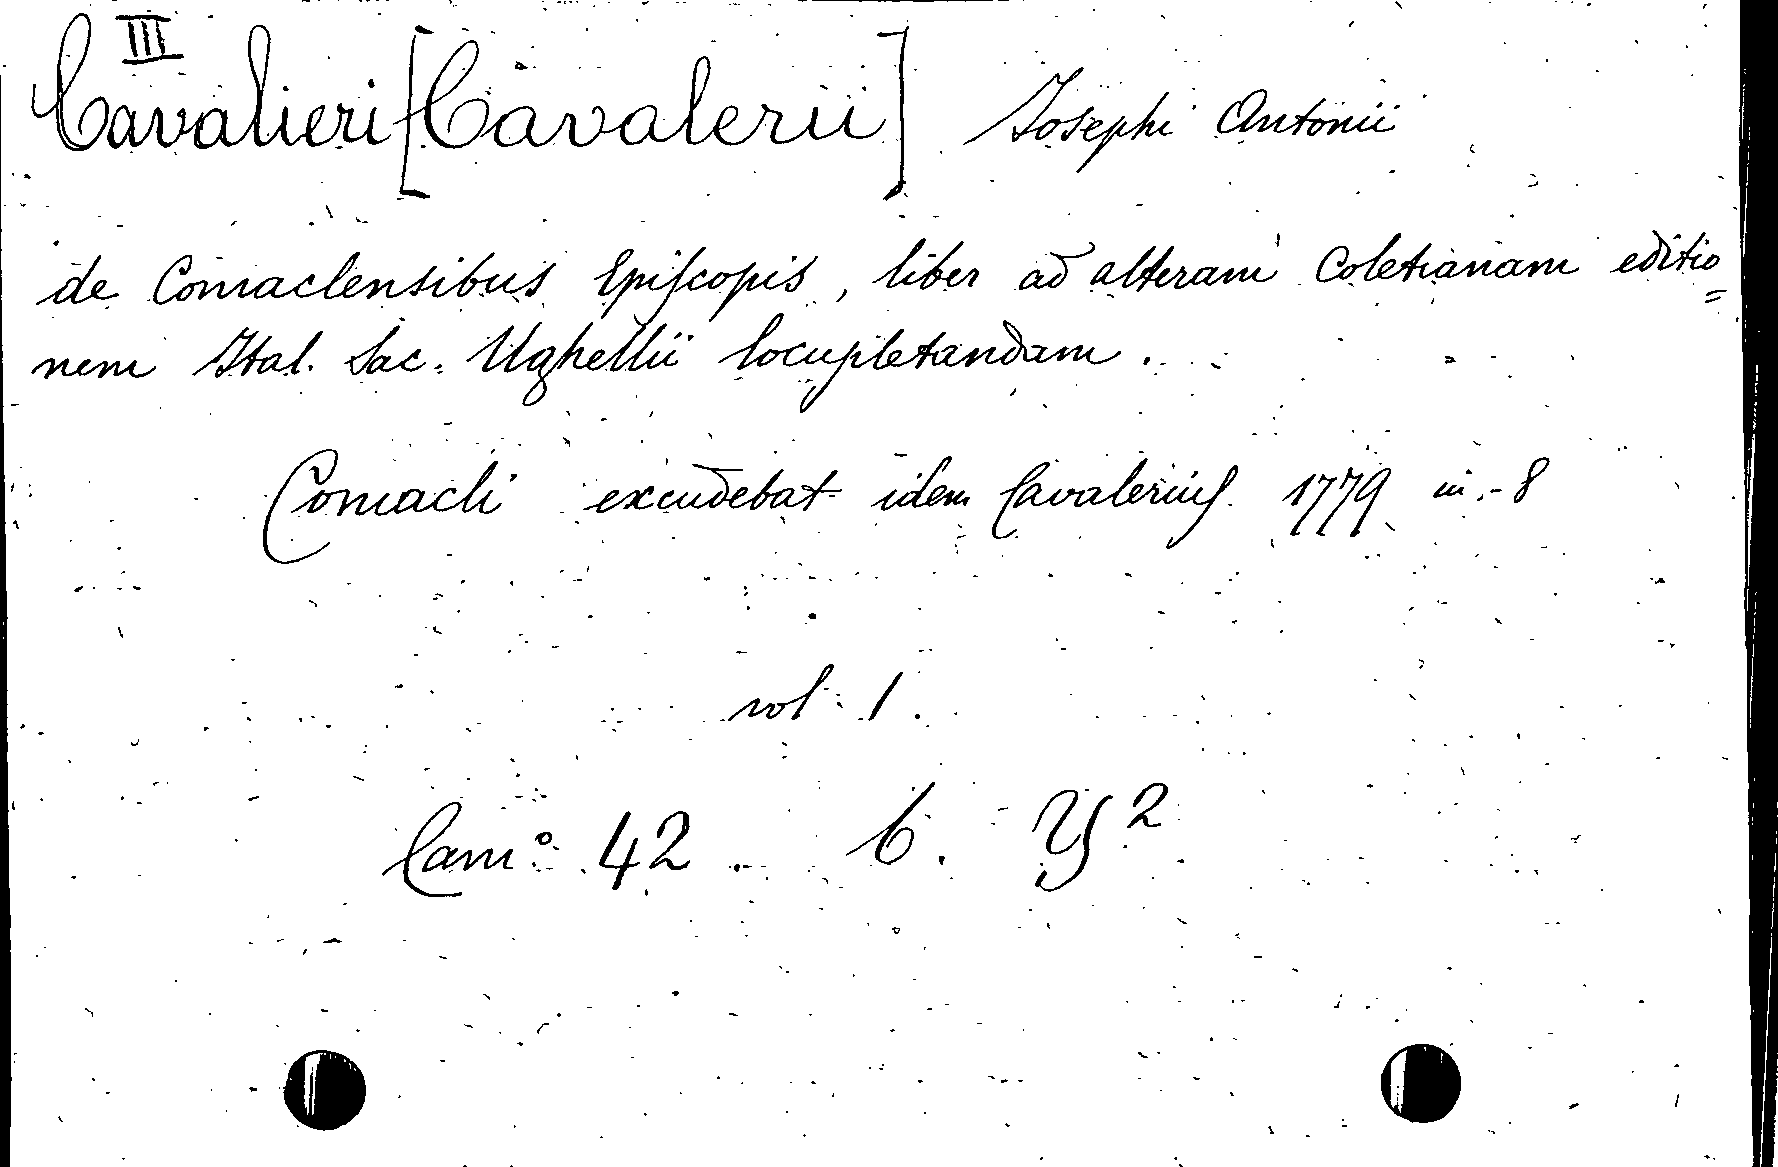 III
Cavalieri [Cavalerii] Josephi Antonii
de Comaclensibus Epiſcopis, liber ad alteram Coletianam editio=
nem Ital. Sac. Ughellii locupletandam.
Comacli excudebat idem Cavalerius 1779 in-8
vol. 1.
Cam.° 42. b. Y²